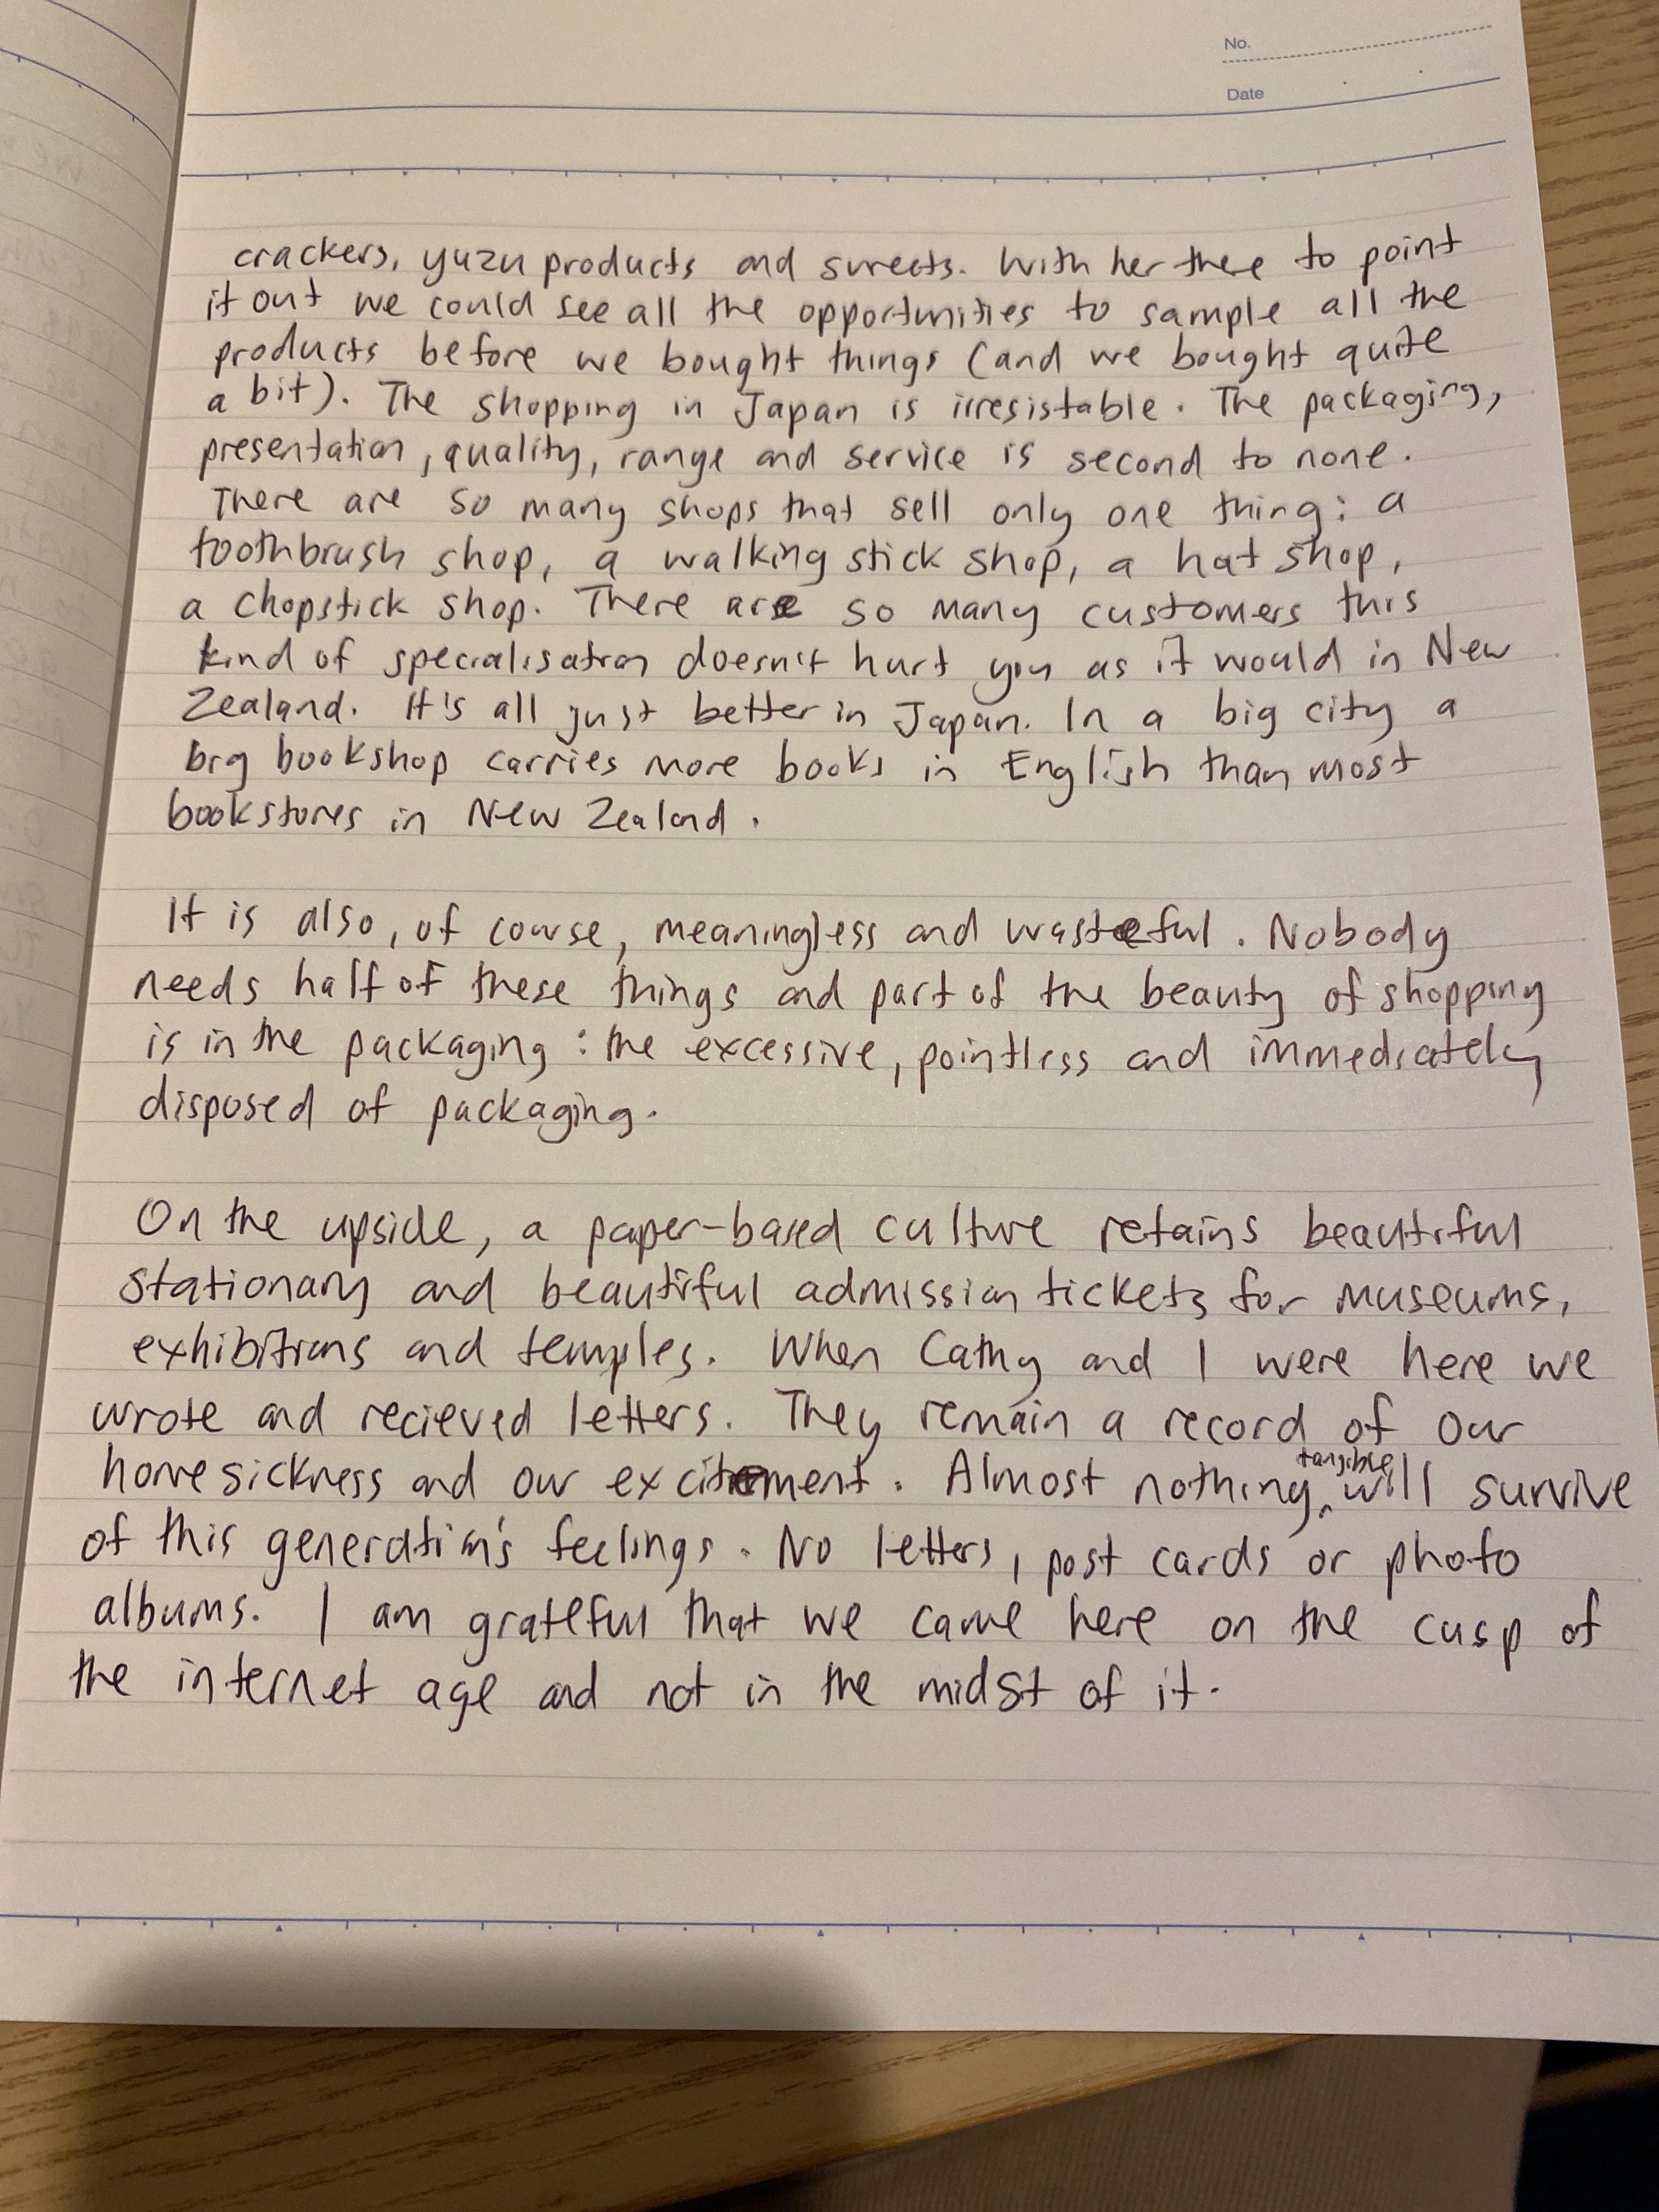 No.
Date
crackers, yuzu products and sweets. With her there to point
it out we could see all the opportunities to sample all the
products before we bought things (and we bought quite
a bit). The shopping in Japan is irresistable. The packaging,
presentation, quality, range and service is second to none.
There are so many shops that sell only one thing: a
toothbrush shop, a walking stick shop, a hat shop,
a chopstick shop. There are so many customers this
kind of specialisation doesn't hurt you as it would in New
Zealand. It's all just better in Japan. In a big city a
big bookshop carries more books in English than most
bookstores in New Zealand.
It is also, of course, meaningless and wasteful. Nobody
needs half of these things and part of the beauty of shopping
is in the packaging: the excessive, pointless and immediately
disposed of packaging.
On the upside, a paper-based culture retains beautiful
stationary and beautiful admission tickets for museums,
exhibitions and temples. When Cathy and I were here we
wrote and recieved letters. They remain a record of our
homesickness and our excitement. Almost nothing tangible will survive
of this generation's feelings. No letters, post cards or photo
albums. I am grateful that we came here on the cusp of
the internet age and not in the midst of it.